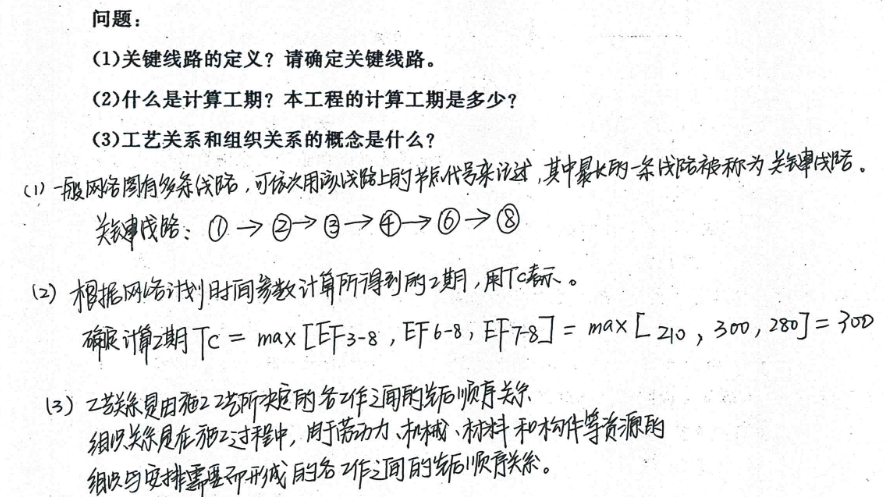 问题：
(1)关键线路的定义？请确定关键线路。
(2)什么是计算工期？本工程的计算工期是多少？
(3)工艺关系和组织关系的概念是什么？
(1) 一般网络图有多条线路，可依次用该线路上的节点代号来记述，其中最长的一条线路被称为关键线路。
关键线路：①→②→③→④→⑥→⑧
(2) 根据网络计划时间参数计算所得到的工期，用Tc表示。
确定计算工期Tc = max[EF3-8，EF6-8，EF7-8] = max[210，300，280] = 300
(3) 工艺关系是由施工工艺所决定的各工作之间的先后顺序关系、
组织关系是在施工过程中，由于劳动力、机械、材料和构件等资源的
组织与安排需要而形成的各工作之间的先后顺序关系。